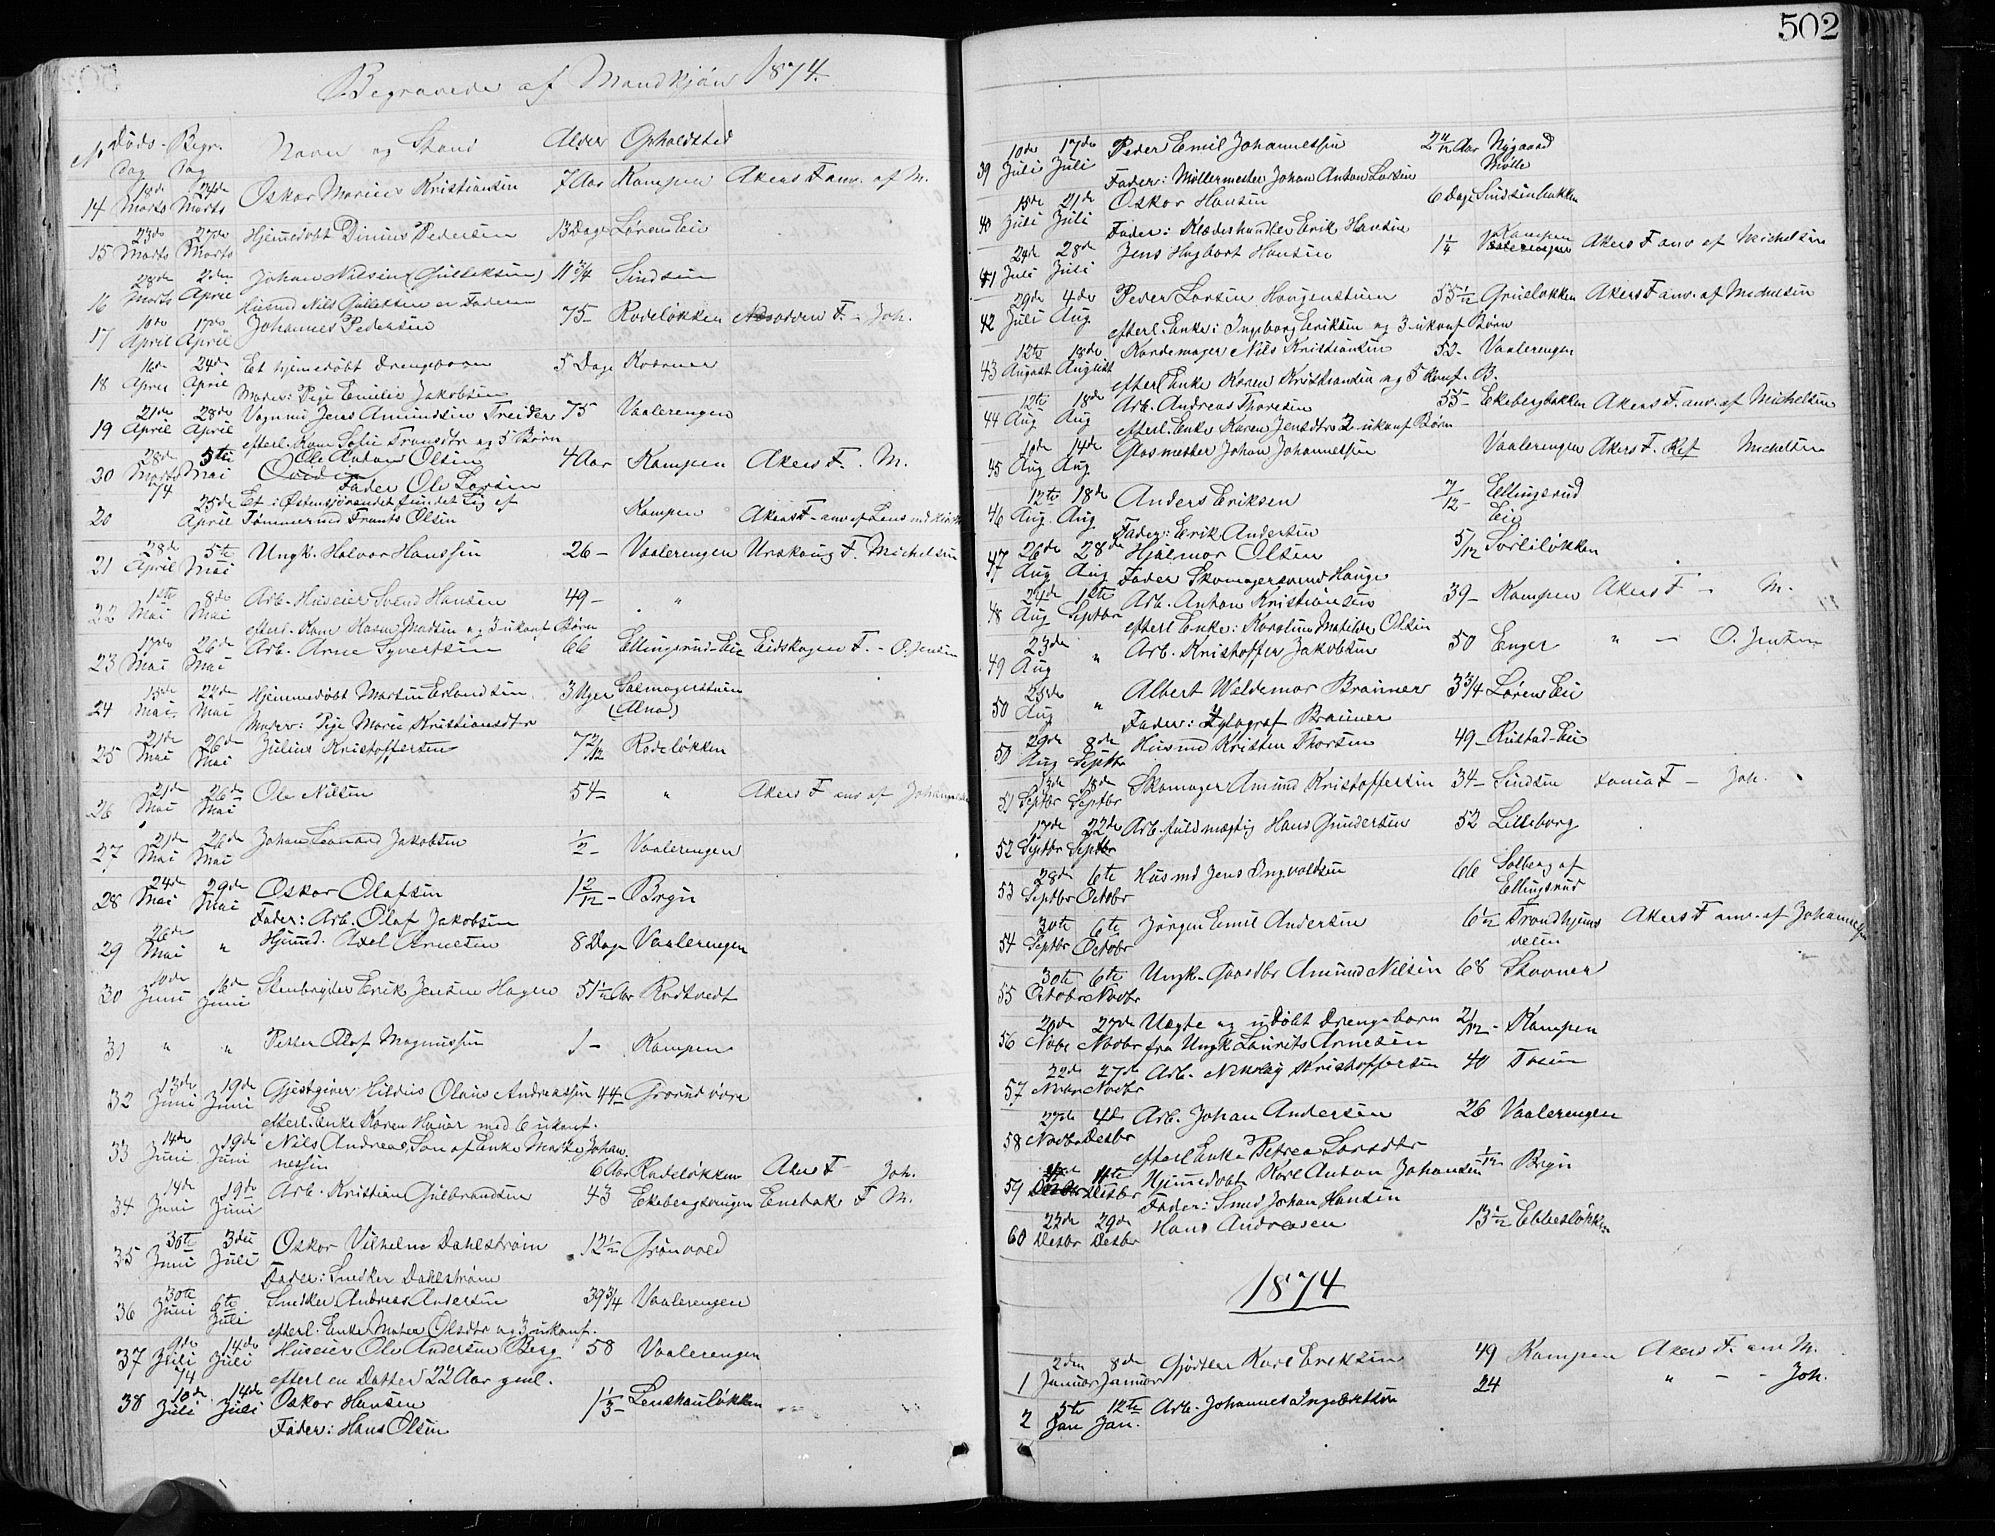 Begravede af Mandkjøn 1874.
№ Døds-dag Begr. dag Navn og Stand Alder Opholdsted
14 19de Marts 24de Marts Oskar Marius Kristiansen 7 Aar Kampen Akers F. anv. af M.
15 23de Marts 27de Marts Hjemedøbt Dinius Pedersen 13 Dage Løren Eie
16 28de Marts 2den April Johan Nilsen (Gulleksen) 11 3/4 Sindsen
Husmd Nils Gulleksen er Faderen
17 10de April 17de April Johannes Pedersen 75 - Rodeløkken F. - Joh.
18 16de April 24de April Et hjemedøbt Drengebarn 5 Dage Kværner
Moder: Pige Emilie Jakobsen
19 21de April 28de April Vognmd Jens Amundsen Treider 75 Vaalerengen
efterl. Kone Sofie Fransdtr og 5 Børn
30 28de Marts 74 5te Mai Ole Anton Olsen 4 Aar Kampen Akers F. M.
Fader Ole Larsen
20 25de April Et i Østensjøvandet fundet Lig af
Tømmermd Frants Olsen Kampen Akers F - anv. af Lensmd
21 28de April 5te Mai Ungk. Halvor Hanssen 26 - Vaalerengen Urskoug F. Michelsen
22 1ste Mai 8de Mai Arb. Huseier Svend Hansen 49 - "
efterl. Kone Karen Madsen og 3 ukonf Børn
23 17de Mai 26de Mai Arb. Arne Syvertsen 66 Ellingsrud-Eie Eidskogen F. - O. Jensen
24 15de Mai 22de Mai Hjemmedøbt Martin Erlandsen 3 Uger Salmagerstuen (Alna)
Moder: Pige Marie Kristiansdtr
25 21de Mai 26de Mai Julius Kristoffersen 7 2/12 Rodeløkken
26 21de Mai 26de Mai Ole Nilsen 54 - " Akers F anv af Johannessen
27 21de Mai 26de Mai Johan Leonard Jakobsen 1/2 - Vaalerengen
28 24de Mai 29de Mai Oskar Olafsen 1 2/12 - Bryn
Fader: Arb. Olaf Jakobsen
29 26de Mai " Hjemmd. Axel Arnesen 8 Dage Vaalerengen
30 10de Juni 16de Juni Stenbryder Erik Jensen Hagen 51 1/2 Aar Rodtvedt
31 " " Petter Olaf Magnussen 1 - Kampen
32 13de Juni 19de Juni Gjestgiver Olaus Andreassen 44 - Grorud
efterl. Enke Karen med 6 ukonf.
33 14de Juni 19de Juni Nils Andreas, Søn af Enke Marthe Johan
nessen 6 Aar Rodeløkken Akers F - Joh.
34 14de Juni 19de Juni Arb. Kristian Gulbrandsen 43 Ekebergskrenten Enebak F M.
35 30te Juni 3die Juli Oskar Vilhelm Dahlstrøm 12 1/2 Grønvold
Fader: Snedker Dahlstrøm
36 30te Juni 6te Juli Snedker Andreas Andersen 39 3/4 Vaalerengen
efterl. Enke Maren Olsdtr og 3 ukonf.
37 9de Juli 14de Juli Huseier Ole Andersen Berg 58 Vaalerengen
efterl en Datter 22 Aar gml.
38 74 10de Juli 14de Juli Oskar Hansen 1 1/3 - Lenskauløkken
Fader: Hans Olsen
502
39 10de Juli 17de Juli Peder Emil Johannessen 2 11/12 Aar Nygaard Mølle
Fader: Møllermester Johan Anton Larsen
40 15de Juli 21de Juli Oskar Hansen 6 Dage Sindsenbakken
Fader: Klædeshandler Erik Hansen
41 24de Juli 28de Juli Jens Hagbart Hansen 1 1/4 Kampen Akers F anv af Michelsen
42 29de Juli 4de Aug Peder Larsen Haugenstuen 55 1/2 Grueløkken Akers F anv. af Michelsen
efterl. Enke: Ingeborg Eriksen og 3 ukonf Børn
43 12te August 18de August Kardemager Nils Kristiansen 52 - Vaalerengen
efterl Enke Karen Kristiansen og 5 konf. B.
44 12te Aug 18de Aug Arb. Andreas Thoresen 55 - Ekebergbakken Akers F. anv. af Michelsen
efterl. Enke Karen Jensdtr 2 ukonf Børn
45 10de Aug 14de Aug Glasmester Johan Johannessen Vaalerengen Akers F. Michelsen
46 12te Aug. 18de Aug Anders Eriksen 7/12 - Ellingsrud Eie
Fader: Erik Andersen
47 26de Aug 28de Aug Hjalmar Olsen 5/12 Sorliløkken
Fader Skomagersvend Hauge
48 24de Aug 1ste Septbr Arb. Anton Kristiansen 39 - Kampen Akers F - M.
efterl Enke: Karoline Matilde Olsen
49 23de Aug " Arb. Kristoffer Jakobsen 50 Enger " - O. Jensen
50 25de Aug " Albert Waldemar Brauner 3 3/4 Løren Eie
Fader: Xylograf Brauner
50 29de Aug 8de Septbr Husmd Kristen Thorsen 49 - Rustad-Eie
51 13de Septbr 18de Septbr Skomager Amund Kristoffersen 34 - Sindsen F - Joh.
52 17de Septbr 22de Septbr Arb. fuldmægtig Hans Gundersen 52 Lilleborg
53 28de Septbr 6te Octobr Husmd Jens Ingvaldsen 66 Solberg af Ellingsrud
54 30te Septbr 6te Octobr Jørgen Emil Andersen 6 1/2 Trondhjemsveien Akers F anv. af Johannessen
55 30te Octobr 6te Novbr Ungk. Gaardbr Amund Nilsen 68 Skovner
56 20de Novbr 27de Novbr Uægte og uDøbt Drengebarn 2/12 - Kampen
fra Ungk Laurits Arnesen
57 22de Novbr 27de Novbr Arb. Nikolay Kristoffersen 40 Tøien
58 27de Novbr 4de Desbr Arb. Johan Andersen 26 Vaalerengen
efterl Enke Petrea Larsdtr
59 11te Desbr Hjemmedøbt Karl Anton Johansen 1/12 - Bryn
Fader: Smed Johan Hansen
60 22de Desbr 29de Desbr Hans Andreasen 13 1/2 Ebbesløkken
1874
1 2den Januar 8de Januar Gjørtler Karl Eriksen 49 Kampen Akers F. anv M.
2 5te Jan 12te Jan. Arb. Johannes Ingebretsen 24 " - - Joh.